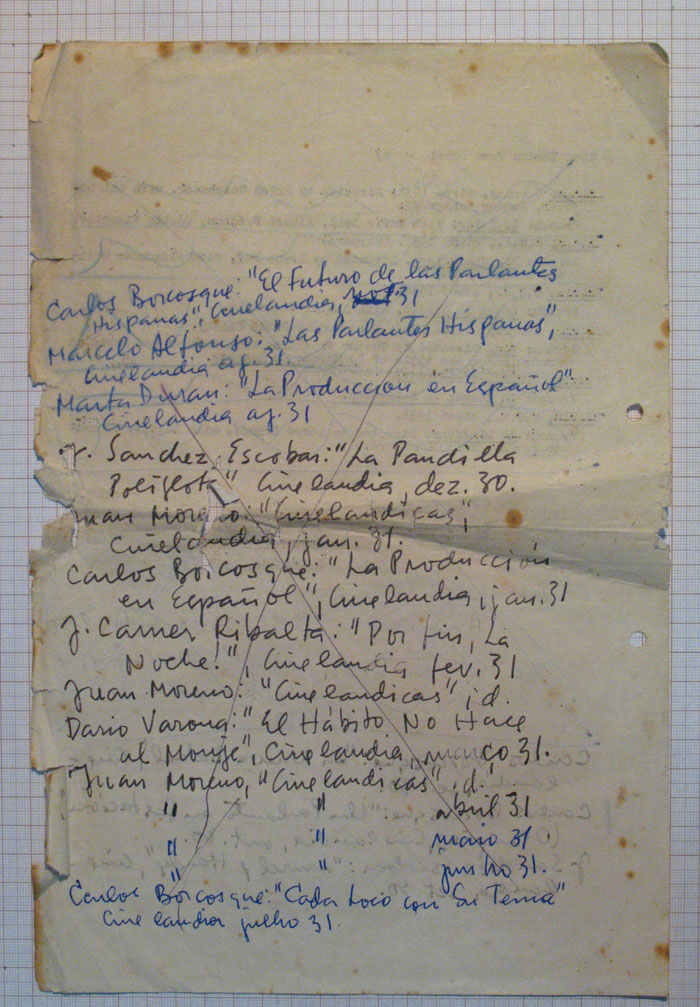 Carlos Borcosque: "El Futuro de las Parlantes
Hispanas", Cinelandia, 31
Marcelo Alfonso: "Las Parlantes Hispanas",
Cinelandia ag. 31.
Marta Duran: "La Produccion en Español"
Cinelandia ag. 31
J. Sanchez Escobar: "La Pandilla
Poliglota" Cinelandia, dez. 30.
Juan Moreno: "Cinelandicas",
Cinelandia, jan. 31.
Carlos Borcosque: "La Producción
en Español", Cinelandia, jan. 31
J. Carner Ribalta: "Por fin, La
Noche!", Cinelandia fev. 31
Juan Moreno: "Cinelandicas", id.
Dario Varona: "El Hábito No Hace
al Monje", Cinelandia, março 31.
Juan Moreno, "Cinelandicas" id.
" " abril 31
" " maio 31
" " junho 31.
Carlos Borcosque: "Cada Loco con Su Tema"
Cinelandia julho 31.